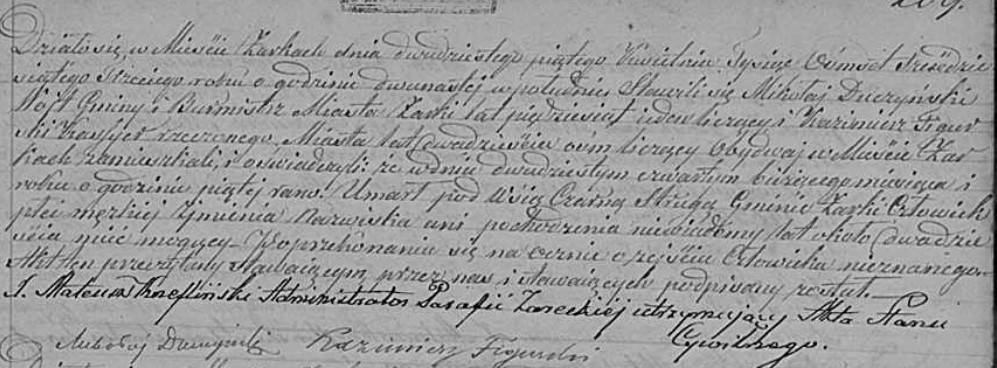 209.
Działo się w Mieście Żarkach dnia dwudziestego piątego Kwietnia Tysiąc Ośmset Trzydzie
siątego Trzeciego roku o godzinie dwunastej w południe. Stawili się Mikołaj Duczyński
Wójt Gminy i Burmistrz Miasta Żarki lat pięćdziesiąt ieden liczący i Kazimierz Figur
ski Kassyer rzeczonego Miasta lat dwadzieście ośm liczący Obydwaj w Mieście Żar
kach zamieszkali, i oświadczyli: że w dniu dwudziestym czwartym bieżącego miesiąca i
roku o godzinie piątej rano, Umarł pod Wsią Czarną Strugą Gminie Żarki Człowiek
płci męzkiej Imienia Nazwiska ani pochodzenia niewiadomy lat około dwadzie
ścia mieć mogący – Po przekonaniu się naocznie o zejściu Człowieka nieznanego
Akt ten przeczytany stawaiącym, przez nas i stawaiących podpisany został.
X. Mateusz Administrator Parafii Żareckiej utrzymujący Akta Stanu
Cywilnego.
Mikołaj Duczyński Kazimierz Figurski